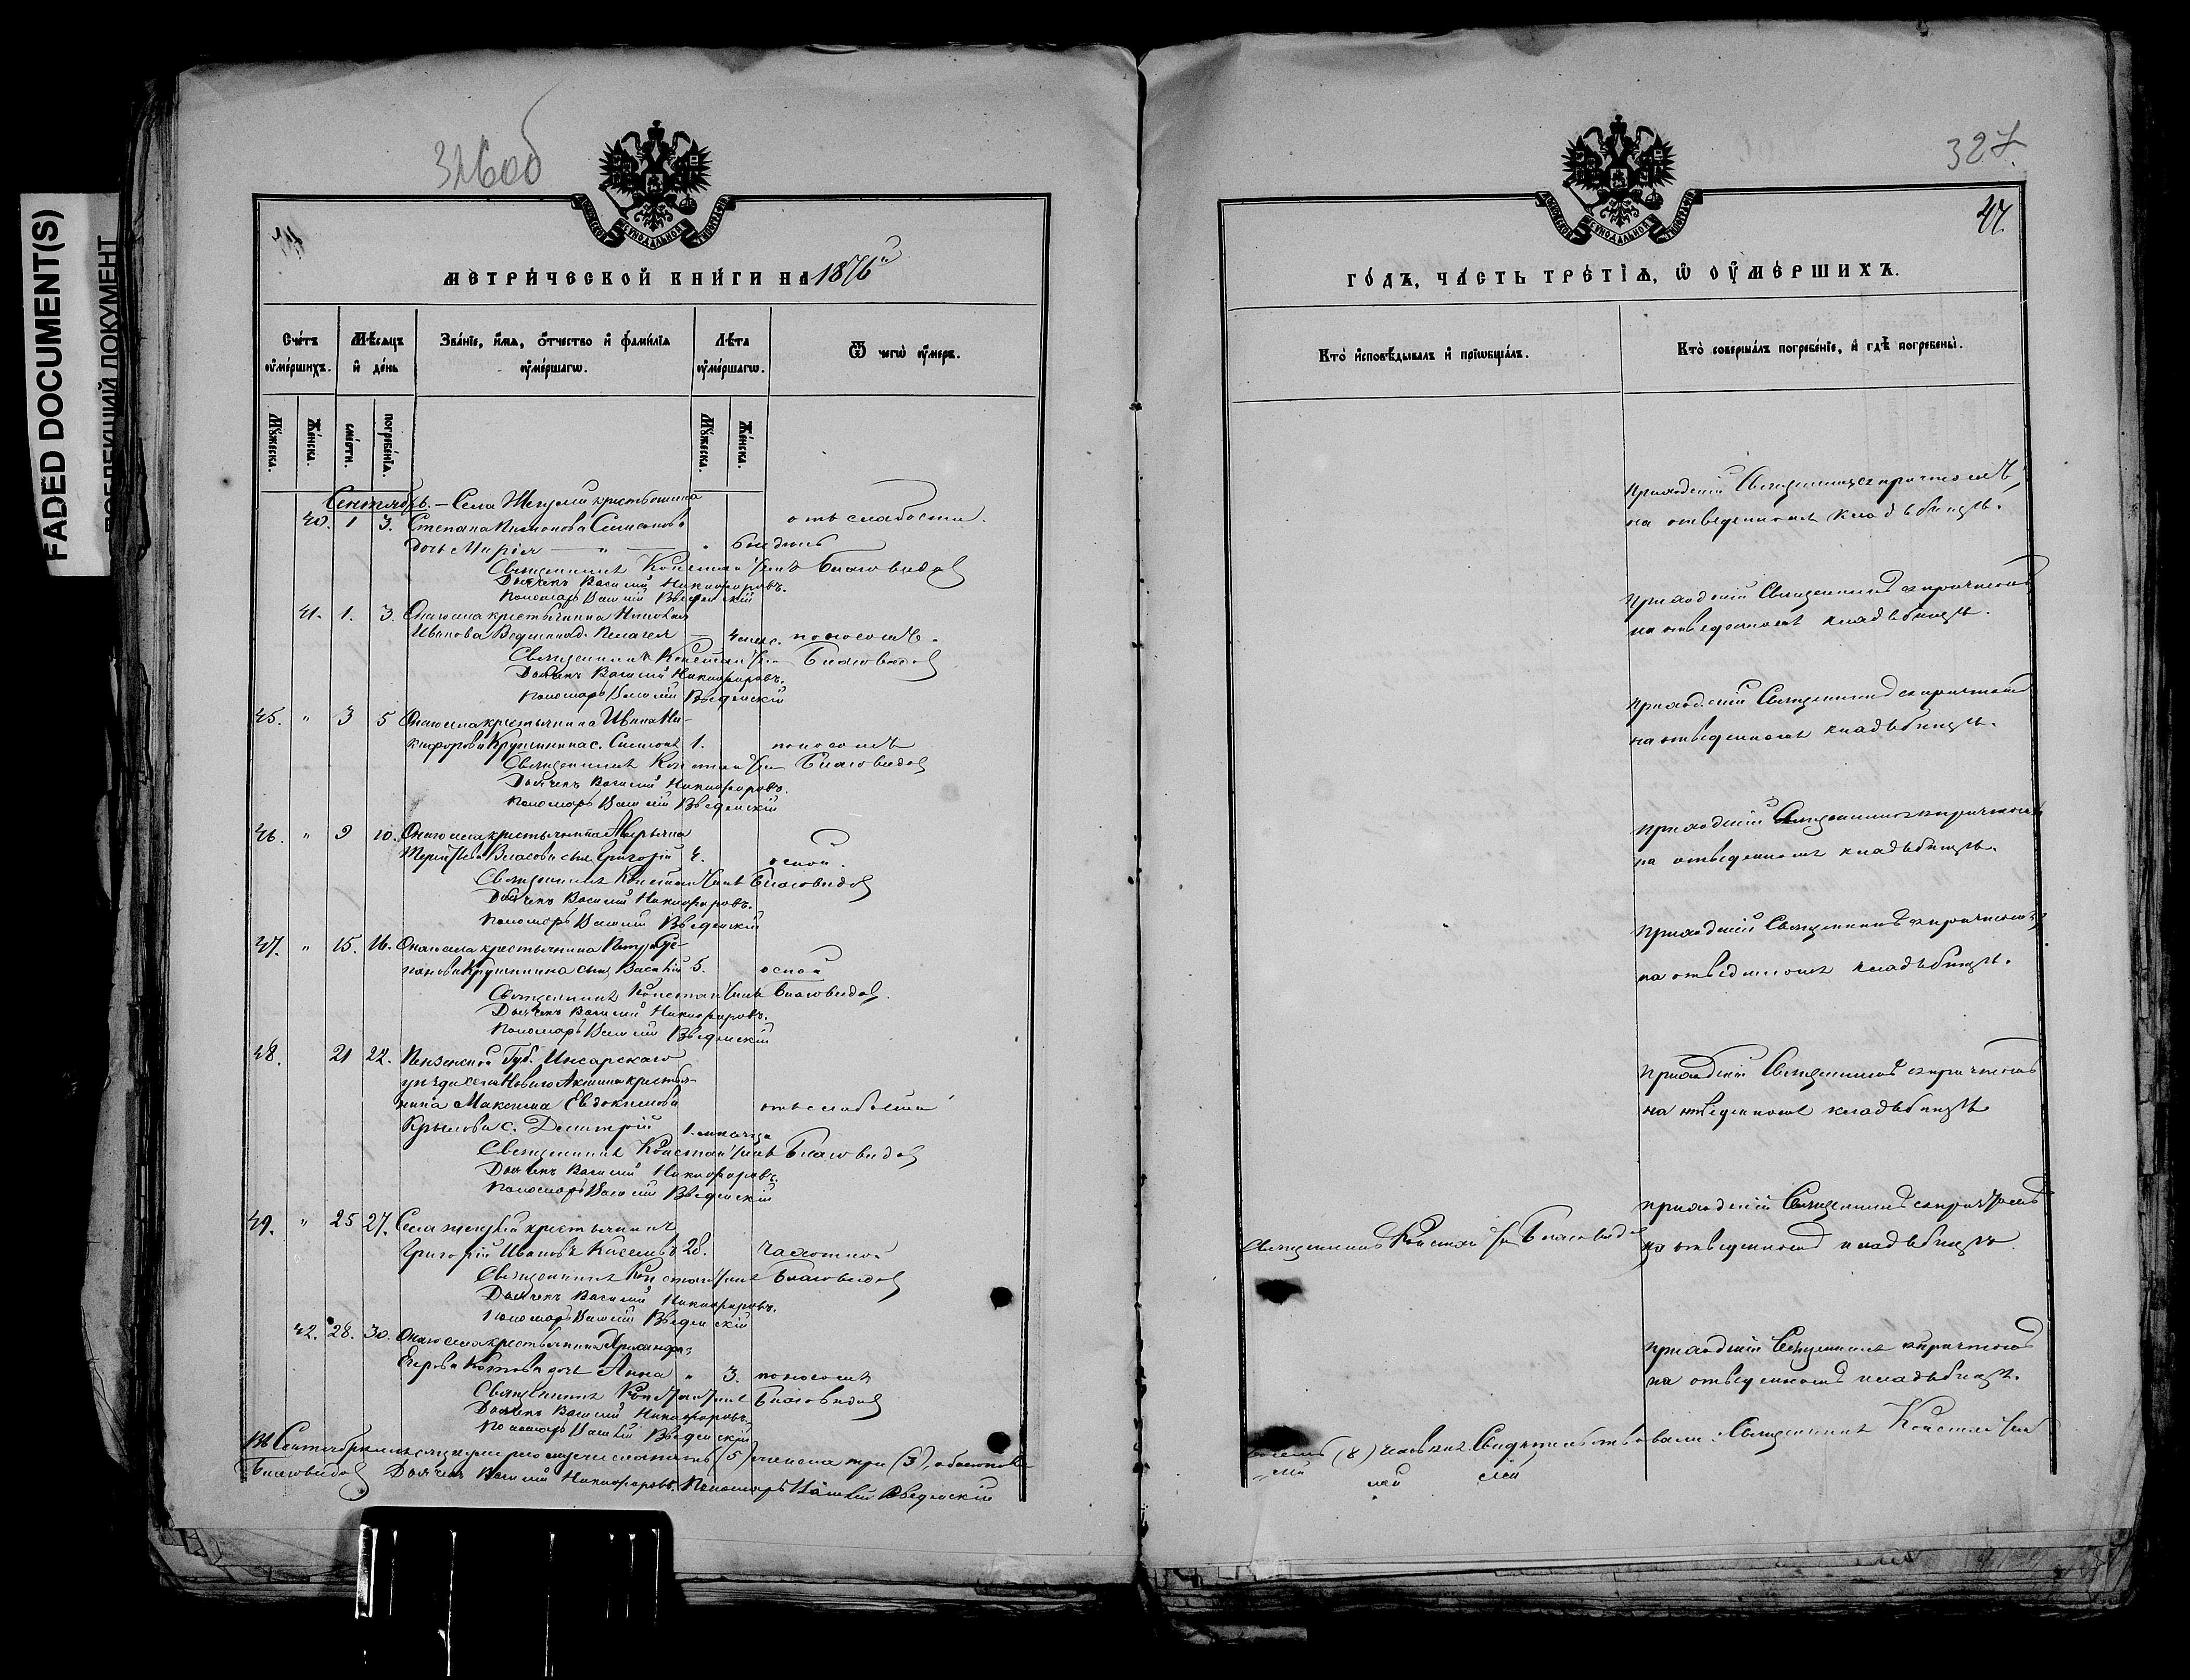 FADED DOCUMENT(S)
326об
МЕТРИЧЕСКОЙ КНИГИ НА 1876й
Счетъ умершихъ.
Мѣсяцъ и день
Званіе, имя, отчество и фамилія умершагѡ.
Лѣта умершагѡ.
Ѿ чегѡ умеръ.
Мужеска.
Женска.
смерти.
погребенія.
Мужеска.
Женска.
Сентябрь. — Села крестьянина
40. 1 3. Степана Симонова отъ слабости.
дочь Марія — " —
Священникъ Константинъ Благовидовъ
Дьячекъ Василій Никифоровъ.
Пономарь Василій Введенскій
41. 1. 3. Онаго села крестьянина Николая
Иванова Пелагея — 4 мѣс. поносомъ.
Священникъ Константинъ Благовидовъ
Дьячекъ Василій Никифоровъ.
Пономарь Василій Введенскій
45. " 3 5 Онаго села крестьянина Ивана Ни-
кифорова с. Симеонъ 1. поносомъ
Священникъ Константинъ Благовидовъ
Дьячекъ Василій Никифоровъ.
Пономарь Василій Введенскій
46. " 9 10. Онаго села крестьянина Аверьяна
Терентьева Власова сынъ Григорій 4. оспой.
Священникъ Константинъ Благовидовъ
Дьячекъ Василій Никифоровъ.
Пономарь Василій Введенскій
47. " 15. 16. Онаго села крестьянина Петра Сте-
панова сынъ Василій 5. оспой
Священникъ Константинъ Благовидовъ.
Дьячекъ Василій Никифоровъ.
Пономарь Василій Введенскій
48. 21 22. Пензенской Губ. Инсарскаго
уѣзда села Новаго Акшина крестья-
нина Максима Евдокимова отъ слабости
Крылова с. Димитрій 1. мѣсяца
Священникъ Константинъ Благовидовъ
Дьячекъ Василій Никифоровъ.
Пономарь Василій Введенскій
49. " 25 27. Села крестьянинъ
Григорій Ивановъ 28. чахоткой
Священникъ Константинъ Благовидовъ
Дьячекъ Василій Никифоровъ.
Пономарь Василій Введенскій
42. 28. 30. Онаго села крестьянина
Егорова Котова дочь Анна " 3. поносомъ
Священникъ Константинъ Благовидовъ
Дьячекъ Василій Никифоровъ
Пономарь Василій Введенскій
Въ Сентябрѣ мѣсяцѣ умерло мужеска пять (5) женска три (3), обоего пола
Благовидовъ Дьячекъ Василій Никифоровъ. Пономарь Василій Введенскій
327.
47.
ГОДЪ, ЧАСТЬ ТРЕТІѦ, Ѡ УМЕРШИХЪ.
Кто исповѣдывалъ и пріѡбщалъ.
Кто совершалъ погребеніе, и гдѣ погребены.
Приходскій Священникъ съ причтомъ,
на отведенномъ кладбищѣ.
Приходскій Священникъ съ причтомъ
на отведенномъ кладбищѣ.
Приходскій Священникъ съ причтомъ
на отведенномъ кладбищѣ.
Приходскій Священникъ съ причтомъ
на отведенномъ кладбищѣ.
Приходскій Священникъ съ причтомъ
на отведенномъ кладбищѣ.
Приходскій Священникъ съ причтомъ
на отведенномъ кладбищѣ
Приходскій Священникъ съ причтомъ
Священникъ Константинъ Благовидовъ на отведенномъ кладбищѣ.
Приходскій Священникъ съ причтомъ
на отведенномъ кладбищѣ.
восемь (8) человѣкъ. Свидѣтельствовали: Священникъ Константинъ